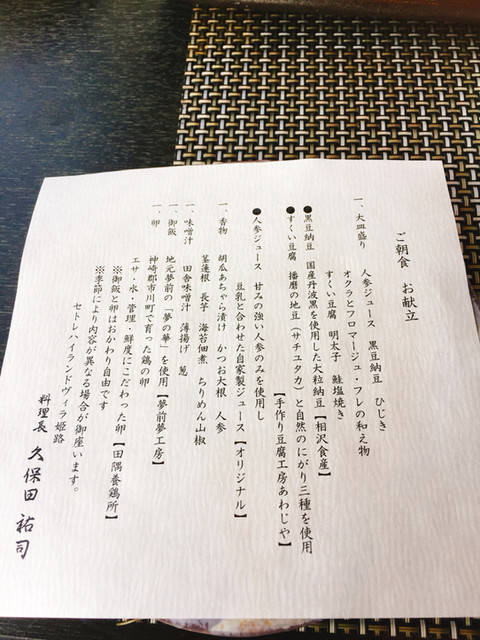 ご朝食 お献立
一、大皿盛り 人参ジュース 黒豆納豆 ひじき
オクラとフロマージュ・フレの和え物
すくい豆腐 明太子 鮭塩焼き
●黒豆納豆 国産丹波黒を使用した大粒納豆【相沢食産】
●すくい豆腐 播磨の地豆(サチユタカ)と自然のにがり三種を使用
【手作り豆腐工房あわじや】
●人参ジュース 甘みの強い人参のみを使用し
豆乳と合わせた自家製ジュース【オリジナル】
一、香物 胡瓜あちゃら漬け かつお大根 人参
茎蓮根 長芋 海苔佃煮 ちりめん山椒
一、味噌汁 田舎味噌汁 薄揚げ 葱
一、御飯 地元夢前の「夢の華」を使用【夢前夢工房】
一、卵 神崎郡市川町で育った鶏の卵
エサ・水・管理・鮮度にこだわった卵【田隅養鶏所】
※御飯と卵はおかわり自由です
※季節により内容が異なる場合が御座います。
セトレハイランドヴィラ姫路
料理長 久保田 祐司